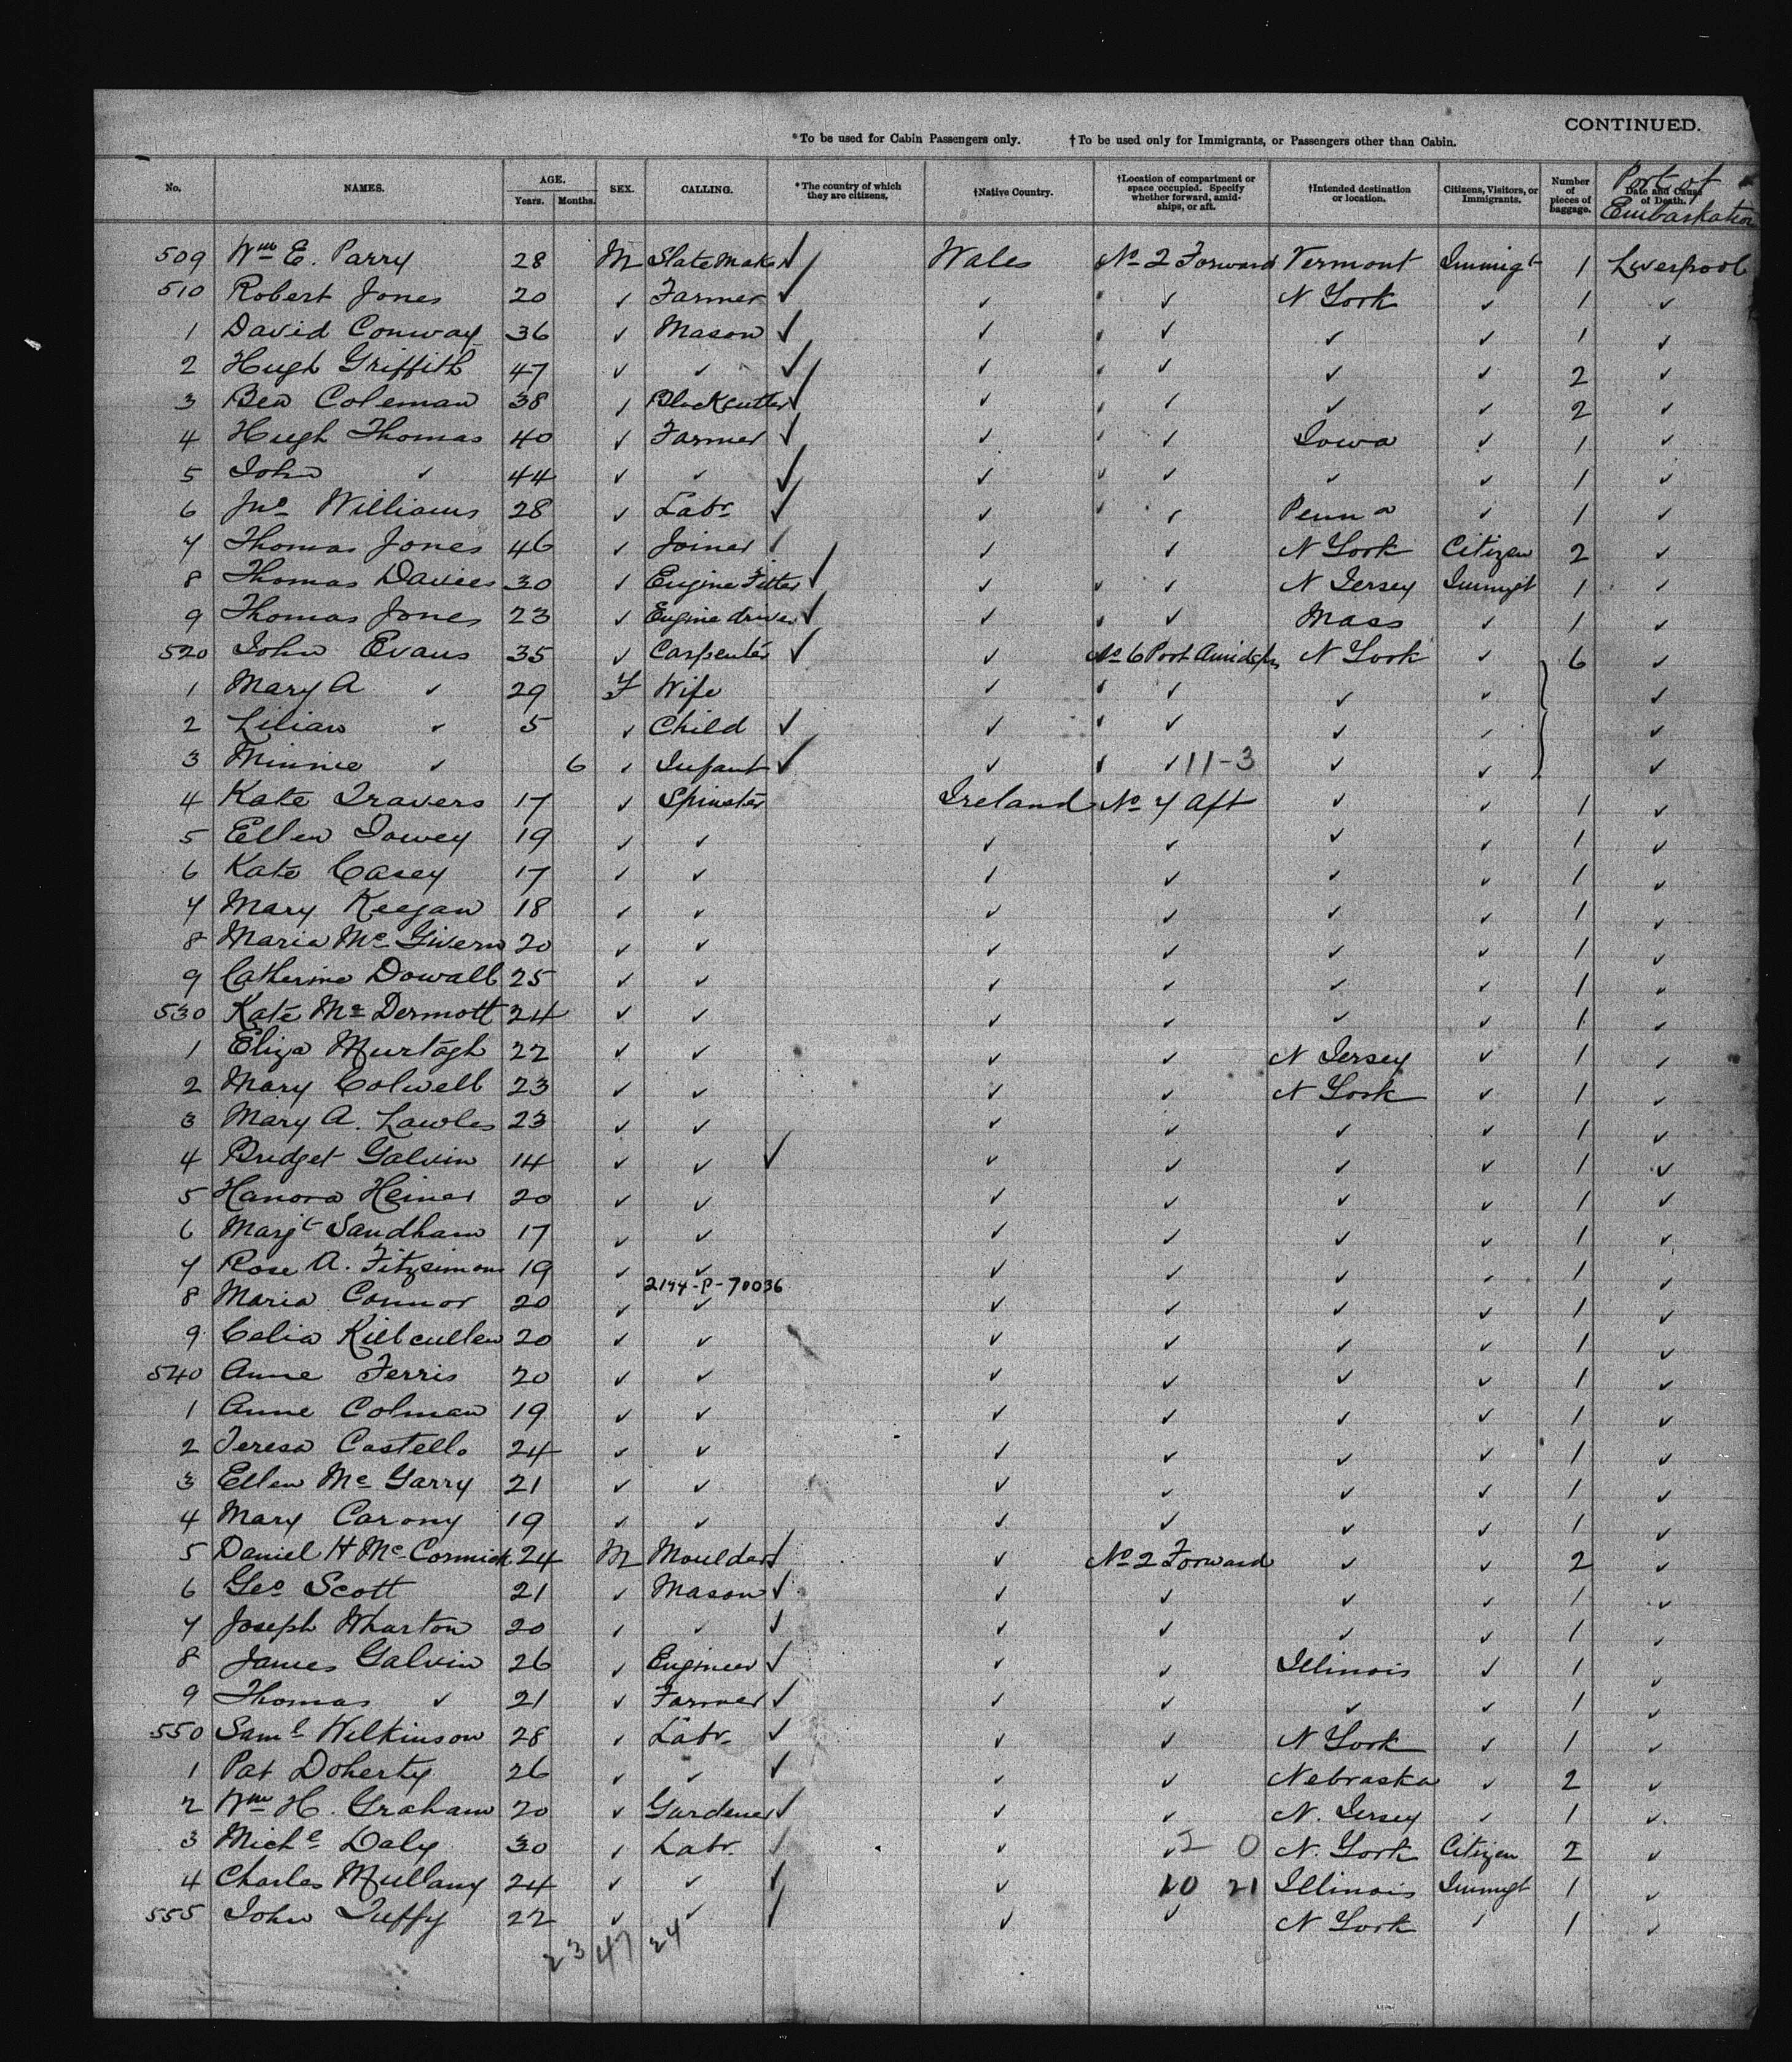 CONTINUED.
*To be used for Cabin Passengers only. †To be used only for Immigrants, or Passengers other than Cabin.
No. NAMES. AGE. Years. Months. SEX. CALLING. *The country of which they are citizens. †Native Country. †Location of compartment or space occupied. Specify whether forward, amidships, or aft. †Intended destination or location. Citizens, Visitors, or Immigrants. Number of pieces of baggage. Date and Cause of Death. Port of Embarkation
509 Wm E. Parry 28 M Slate Maker ✓ Wales No 2 Forward Vermont Immigt 1 Liverpool
510 Robert Jones 20 ✓ Farmer ✓ ✓ ✓ N York ✓ 1 ✓
1 David Conway 36 ✓ Mason ✓ ✓ ✓ ✓ ✓ 1 ✓
2 Hugh Griffith 47 ✓ ✓ ✓ ✓ ✓ ✓ ✓ 2 ✓
3 Ben Coleman 38 ✓ Blockcutter ✓ ✓ ✓ ✓ ✓ 2 ✓
4 Hugh Thomas 40 ✓ Farmer ✓ ✓ ✓ Iowa ✓ 1 ✓
5 John ✓ 44 ✓ ✓ ✓ ✓ ✓ ✓ ✓ 1 ✓
6 Jno Williams 28 ✓ Labr ✓ ✓ ✓ Penna ✓ 1 ✓
7 Thomas Jones 46 ✓ Joiner ✓ ✓ ✓ N York Citizen 2 ✓
8 Thomas Davies 30 ✓ Engine Fitter ✓ ✓ ✓ N Jersey Immigt 1 ✓
9 Thomas Jones 23 ✓ Engine driver ✓ ✓ ✓ Mass ✓ 1 ✓
520 John Evans 35 ✓ Carpenter ✓ ✓ No 6 Port Amidshps N York ✓ 6 ✓
1 Mary A ✓ 29 F Wife ✓ ✓ ✓ ✓ ✓
2 Lilian ✓ 5 ✓ Child ✓ ✓ ✓ ✓ ✓ ✓
3 Minnie ✓ 6 ✓ Infant ✓ ✓ ✓ 11-3 ✓ ✓ ✓
4 Kate Travers 17 ✓ Spinster Ireland No 7 Aft ✓ ✓ 1 ✓
5 Ellen Towey 19 ✓ ✓ ✓ ✓ ✓ ✓ 1 ✓
6 Kate Casey 17 ✓ ✓ ✓ ✓ ✓ ✓ 1 ✓
7 Mary Keegan 18 ✓ ✓ ✓ ✓ ✓ ✓ 1 ✓
8 Maria Mc Givern 20 ✓ ✓ ✓ ✓ ✓ ✓ 1 ✓
9 Catherine Dowall 25 ✓ ✓ ✓ ✓ ✓ ✓ 1 ✓
530 Kate Mc Dermott 24 ✓ ✓ ✓ ✓ ✓ ✓ 1 ✓
1 Eliza Murtagh 22 ✓ ✓ ✓ ✓ N Jersey ✓ 1 ✓
2 Mary Colwell 23 ✓ ✓ ✓ ✓ N York ✓ 1 ✓
3 Mary A. Lawles 23 ✓ ✓ ✓ ✓ ✓ ✓ 1 ✓
4 Bridget Galvin 14 ✓ ✓ ✓ ✓ ✓ ✓ ✓ 1 ✓
5 Hanora Heiner 20 ✓ ✓ ✓ ✓ ✓ ✓ 1 ✓
6 Margt Sandham 17 ✓ ✓ ✓ ✓ ✓ ✓ 1 ✓
7 Rose A. Fitzsimons 19 ✓ ✓ ✓ ✓ ✓ ✓ 1 ✓
2194-P-70036
8 Maria Connor 20 ✓ ✓ ✓ ✓ ✓ ✓ 1 ✓
9 Celia Kilcullen 20 ✓ ✓ ✓ ✓ ✓ ✓ 1 ✓
540 Anne Ferris 20 ✓ ✓ ✓ ✓ ✓ ✓ 1 ✓
1 Anne Colman 19 ✓ ✓ ✓ ✓ ✓ ✓ 1 ✓
2 Teresa Costello 24 ✓ ✓ ✓ ✓ ✓ ✓ 1 ✓
3 Ellen Mc Garry 21 ✓ ✓ ✓ ✓ ✓ ✓ 1 ✓
4 Mary Carony 19 ✓ ✓ ✓ ✓ ✓ ✓ 1 ✓
5 Daniel H Mc Cormick 24 M Moulder ✓ ✓ No 2 Forward ✓ ✓ 2 ✓
6 Geo Scott 21 ✓ Mason ✓ ✓ ✓ ✓ ✓ 1 ✓
7 Joseph Wharton 20 ✓ ✓ ✓ ✓ ✓ ✓ ✓ 1 ✓
8 James Galvin 26 ✓ Engineer ✓ ✓ ✓ Illinois ✓ 1 ✓
9 Thomas ✓ 21 ✓ Farmer ✓ ✓ ✓ ✓ ✓ 1 ✓
550 Saml Wilkinson 28 ✓ Labr ✓ ✓ ✓ N York ✓ 1 ✓
1 Pat Doherty 26 ✓ ✓ ✓ ✓ ✓ Nebraska ✓ 2 ✓
2 Wm H. Graham 20 ✓ Gardener ✓ ✓ ✓ N. Jersey ✓ 1 ✓
3 Michl Daly 30 ✓ Labr. ✓ ✓ ✓ 2 0 N. York Citizen 2 ✓
4 Charles Mullany 24 ✓ ✓ ✓ ✓ 10 21 Illinois Immigt 1 ✓
555 John Duffy 22 ✓ ✓ ✓ ✓ ✓ N York ✓ 1 ✓
23 47 24